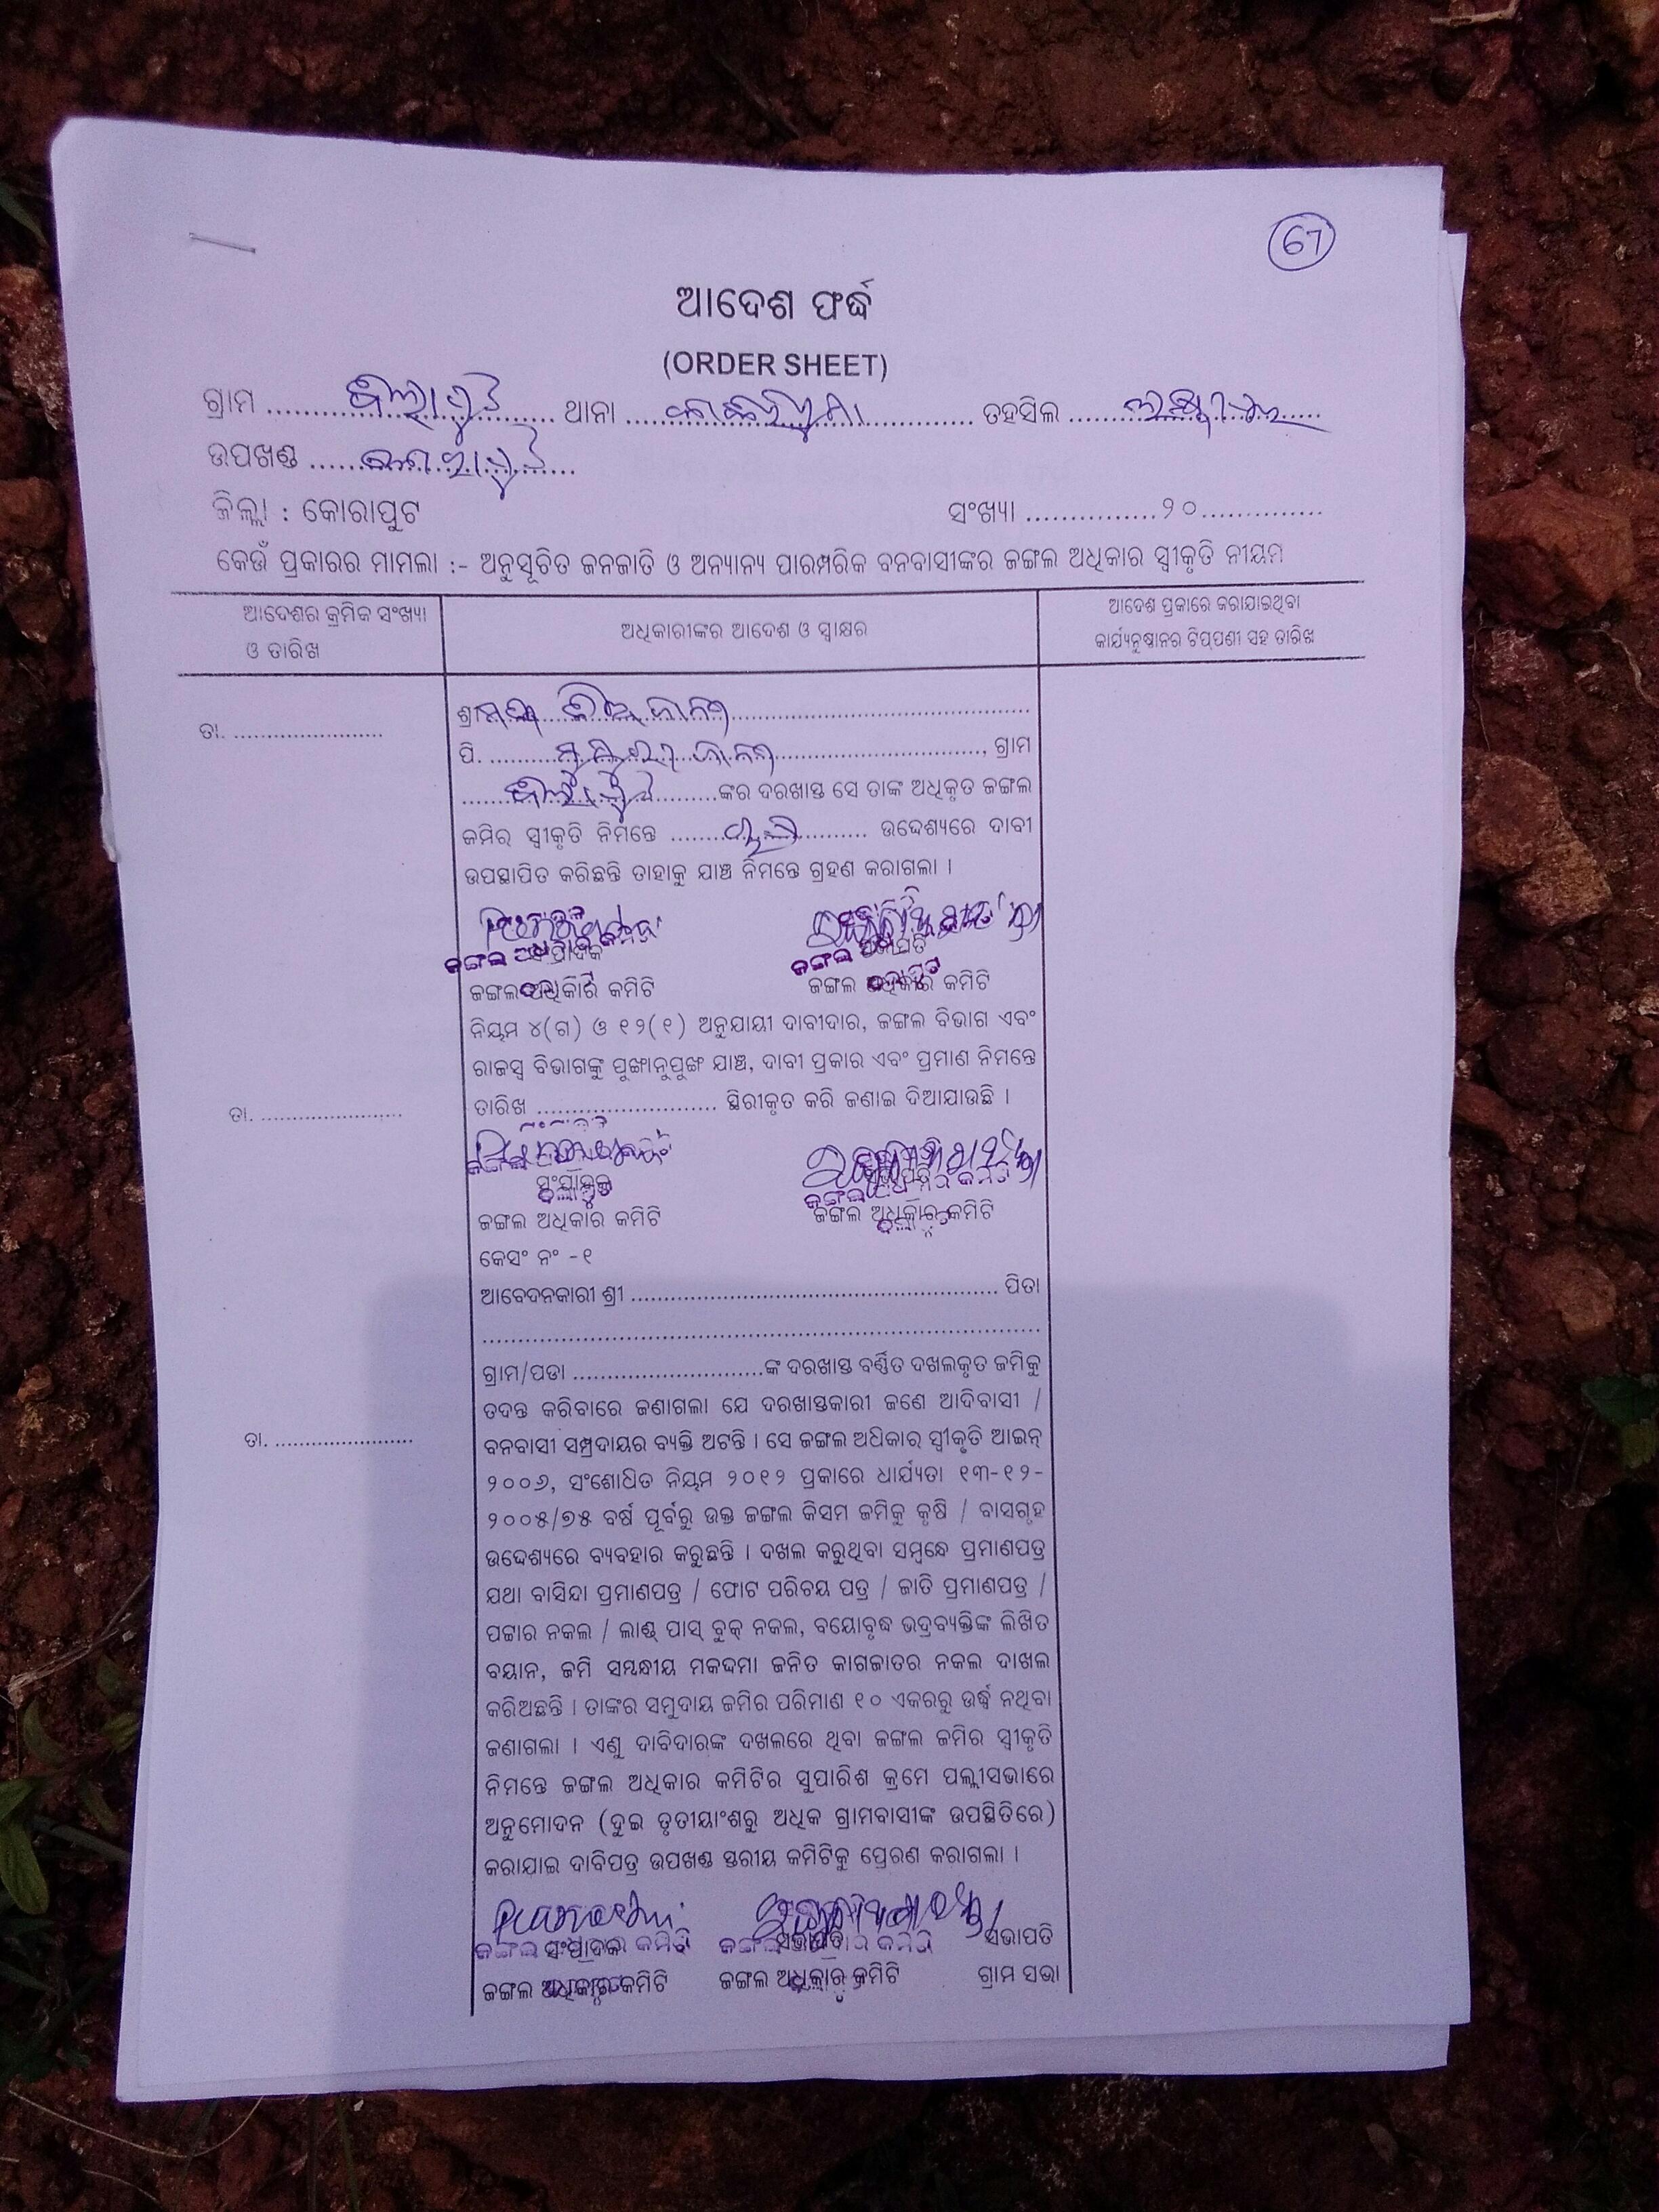 67
ଆଦେଶ ଫର୍ଦ୍ଧ
(ORDER SHEET)
ଗ୍ରାମ .............................. ଥାନା .............................. ତହସିଲ ..............................
ଉପଖଣ୍ଡ ..............................
ଜିଲ୍ଲା : କୋରାପୁଟ ସଂଖ୍ୟା ................୨୦...............
କେଉଁ ପ୍ରକାରର ମାମଲା :- ଅନୁସୂଚିତ ଜନଜାତି ଓ ଅନ୍ୟାନ୍ୟ ପାରମ୍ପରିକ ବନବାସୀଙ୍କର ଜଙ୍ଗଲ ଅଧିକାର ସ୍ୱୀକୃତି ନୀୟମ
ଆଦେଶର କ୍ରମିକ ସଂଖ୍ୟା
ଓ ତାରିଖ
ଅଧିକାରୀଙ୍କର ଆଦେଶ ଓ ସ୍ୱାକ୍ଷର
ଆଦେଶ ପ୍ରକାରେ କରାଯାଇଥିବା
କାର୍ଯ୍ୟନୁଷ୍ଠାନର ଟିପ୍ପଣୀ ସହ ତାରିଖ
ତା. .......................
ଶ୍ରୀ..............................
ପି. .............................., ଗ୍ରାମ
..............................ଙ୍କର ଦରଖାସ୍ତ ସେ ତାଙ୍କ ଅଧିକୃତ ଜଙ୍ଗଲ
ଜମିର ସ୍ୱୀକୃତି ନିମନ୍ତେ .............................. ଉଦ୍ଦେଶ୍ୟରେ ଦାବୀ
ଉପସ୍ଥାପିତ କରିଛନ୍ତି ତାହାକୁ ଯାଞ୍ଚ ନିମନ୍ତେ ଗ୍ରହଣ କରାଗଲା ।
ଜଙ୍ଗଲ ଅଧିକାର କମିଟି ଜଙ୍ଗଲ ଅଧିକାର କମିଟି
ନିୟମ ୪(ଗ) ଓ ୧୨(୧) ଅନୁଯାୟୀ ଦାବୀଦାର, ଜଙ୍ଗଲ ବିଭାଗ ଏବଂ
ରାଜସ୍ୱ ବିଭାଗଙ୍କୁ ପୁଙ୍ଖାନୁପୁଙ୍ଖ ଯାଞ୍ଚ, ଦାବୀ ପ୍ରକାର ଏବଂ ପ୍ରମାଣ ନିମନ୍ତେ
ତା. .......................
ତାରିଖ .......................... ସ୍ଥିରୀକୃତ କରି ଜଣାଇ ଦିଆଯାଉଛି ।
ଜଙ୍ଗଲ ଅଧିକାର କମିଟି ଜଙ୍ଗଲ ଅଧିକାର କମିଟି
କେସଂ ନଂ -୧
ଆବେଦନକାରୀ ଶ୍ରୀ ....................................................... ପିତା
....................................................................................
ଗ୍ରାମ/ପଡା .............................ଙ୍କ ଦରଖାସ୍ତ ବର୍ଣ୍ଣିତ ଦଖଲକୃତ ଜମିକୁ
ତଦନ୍ତ କରିବାରେ ଜଣାଗଲା ଯେ ଦରଖାସ୍ତକାରୀ ଜଣେ ଆଦିବାସୀ /
ତା. .......................
ବନବାସୀ ସମ୍ପ୍ରଦାୟର ବ୍ୟକ୍ତି ଅଟନ୍ତି । ସେ ଜଙ୍ଗଲ ଅଧିକାର ସ୍ୱୀକୃତି ଆଇନ୍
୨୦୦୬, ସଂଶୋଧିତ ନିୟମ ୨୦୧୨ ପ୍ରକାରେ ଧାର୍ଯ୍ୟତା ୧୩-୧୨-
୨୦୦୫/୭୫ ବର୍ଷ ପୂର୍ବରୁ ଉକ୍ତ ଜଙ୍ଗଲ କିସମ ଜମିକୁ କୃଷି / ବାସଗୃହ
ଉଦ୍ଦେଶ୍ୟରେ ବ୍ୟବହାର କରୁଛନ୍ତି । ଦଖଲ କରୁଥିବା ସମ୍ବନ୍ଧେ ପ୍ରମାଣପତ୍ର
ଯଥା ବାସିନ୍ଦା ପ୍ରମାଣପତ୍ର / ଫୋଟ ପରିଚୟ ପତ୍ର / ଜାତି ପ୍ରମାଣପତ୍ର /
ପଟ୍ଟାର ନକଲ / ଲାଣ୍ଡ୍ ପାସ୍ ବୁକ୍ ନକଲ, ବୟୋବୃଦ୍ଧ ଭଦ୍ରବ୍ୟକ୍ତିଙ୍କ ଲିଖିତ
ବୟାନ, ଜମି ସମ୍ବନ୍ଧୀୟ ମକଦ୍ଦମା ଜନିତ କାଗଜାତର ନକଲ ଦାଖଲ
କରିଅଛନ୍ତି । ତାଙ୍କର ସମୁଦାୟ ଜମିର ପରିମାଣ ୧୦ ଏକରରୁ ଉର୍ଦ୍ଧ୍ୱ ନଥିବା
ଜଣାଗଲା । ଏଣୁ ଦାବିଦାରଙ୍କ ଦଖଲରେ ଥିବା ଜଙ୍ଗଲ ଜମିର ସ୍ୱୀକୃତି
ନିମନ୍ତେ ଜଙ୍ଗଲ ଅଧିକାର କମିଟିର ସୁପାରିଶ କ୍ରମେ ପଲ୍ଲୀସଭାରେ
ଅନୁମୋଦନ (ଦୁଇ ତୃତୀୟାଂଶରୁ ଅଧିକ ଗ୍ରାମବାସୀଙ୍କ ଉପସ୍ଥିତିରେ)
କରାଯାଇ ଦାବିପତ୍ର ଉପଖଣ୍ଡ ସ୍ତରୀୟ କମିଟିକୁ ପ୍ରେରଣ କରାଗଲା ।
ସଂଷାଦକ ସଭାପତି ସଭାପତି
ଜଙ୍ଗଲ ଅଧିକାର କମିଟି ଜଙ୍ଗଲ ଅଧିକାର କମିଟି ଗ୍ରାମ ସଭା